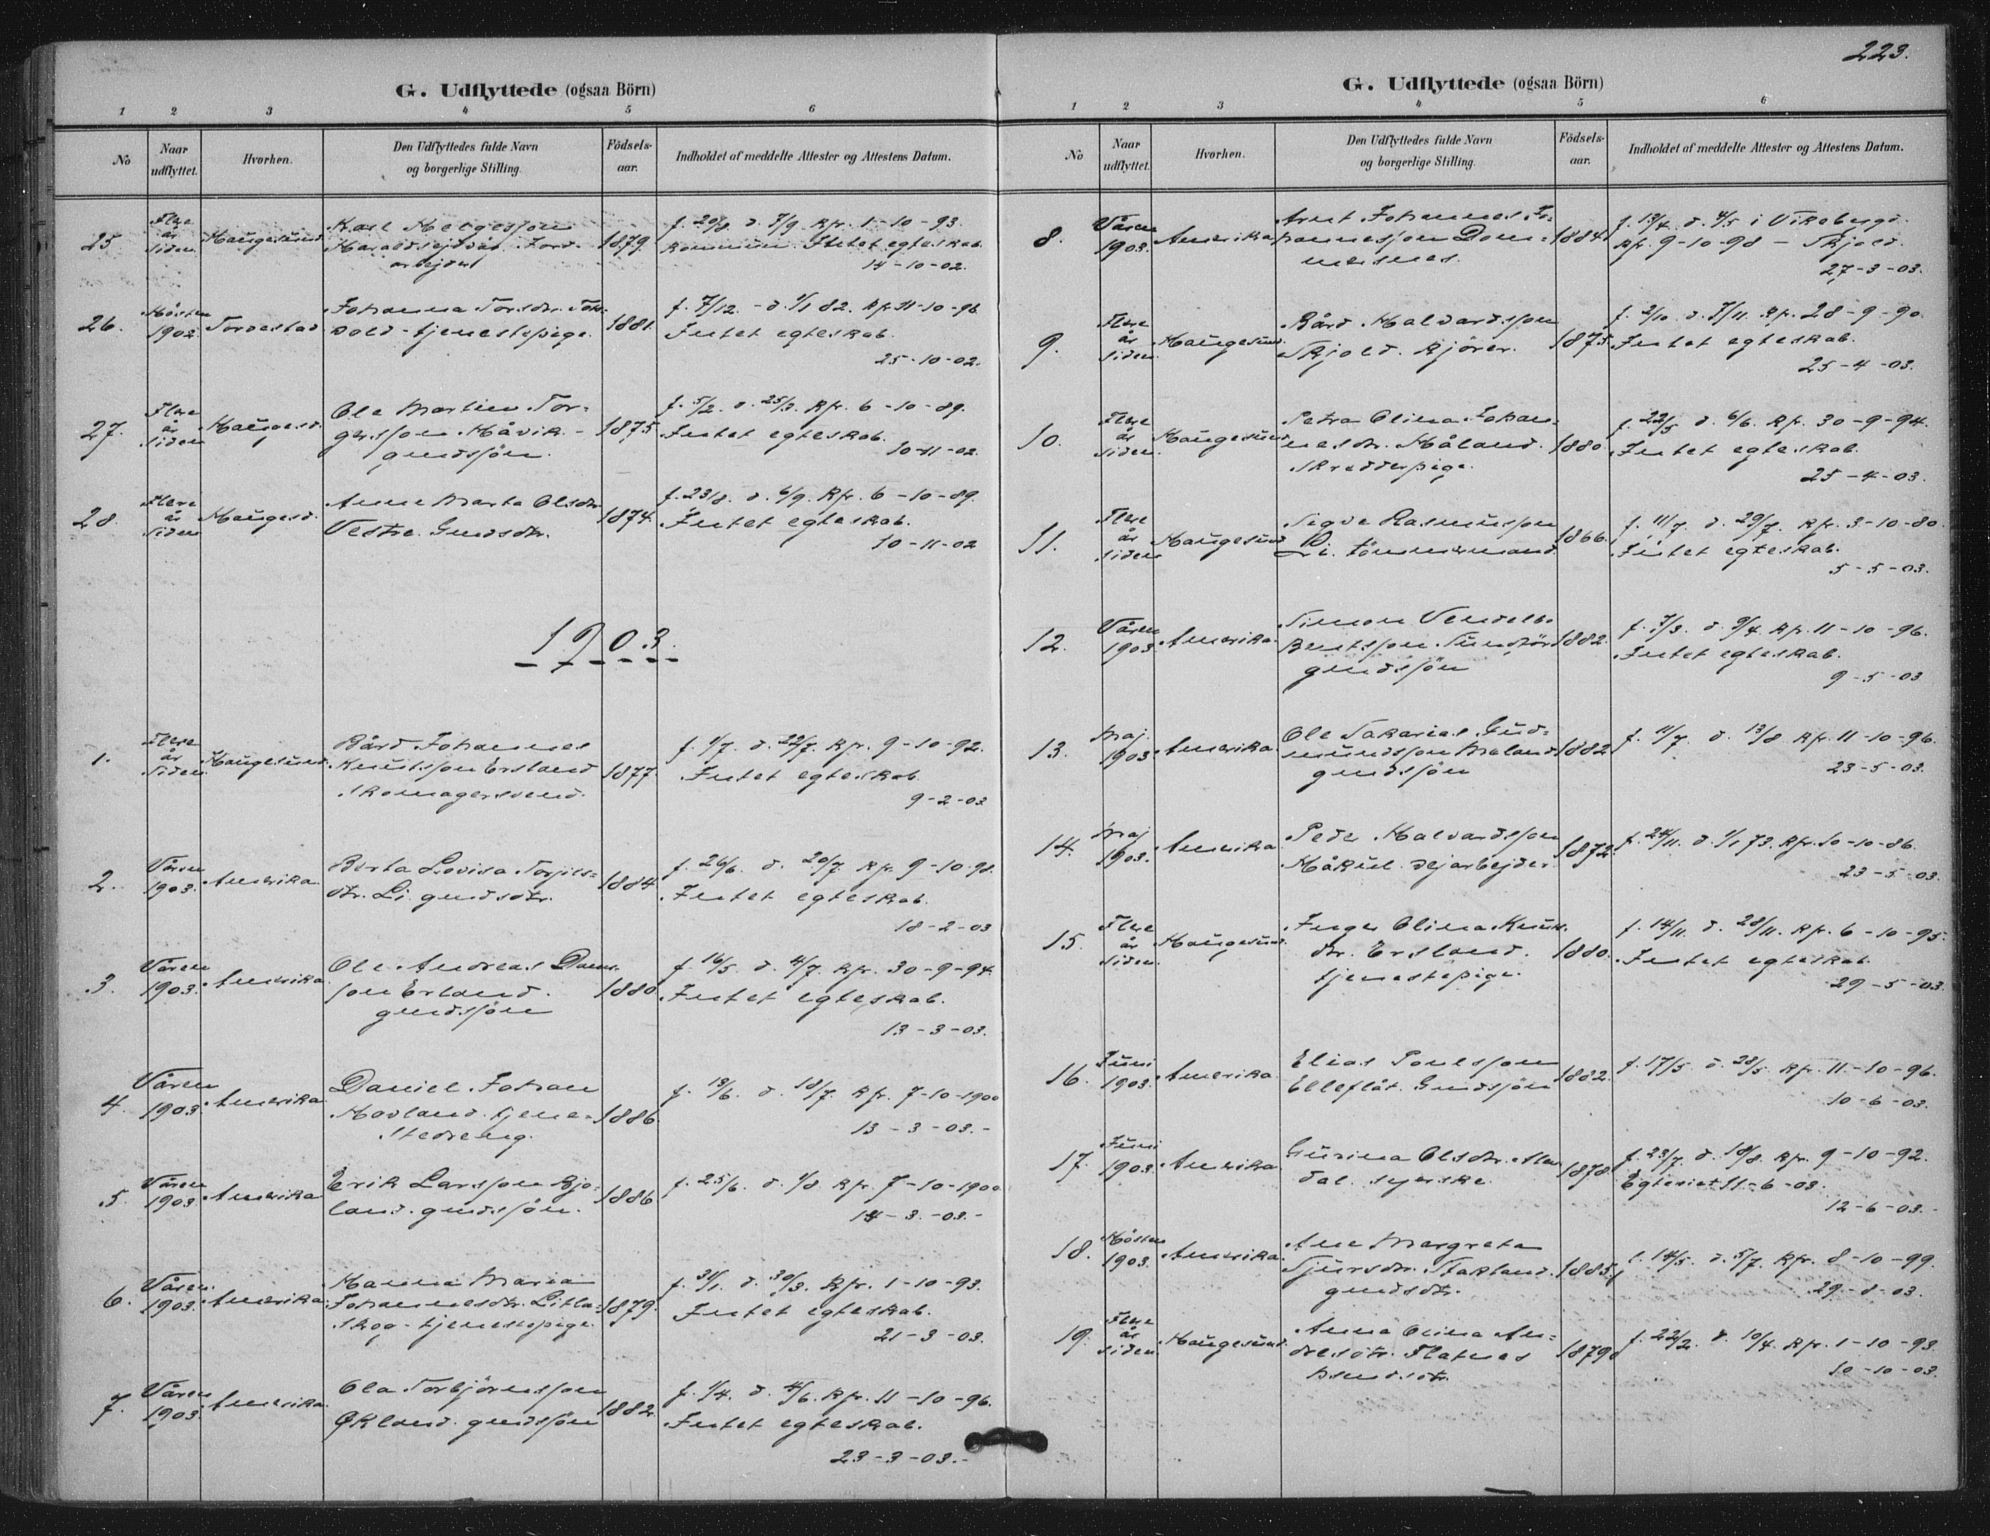 223.
G. Udflyttede (ogsaa Börn)
1 2 3 4 5 6
No
Naar udflyttet.
Hvorhen.
Den Udflyttedes fulde Navn og borgerlige Stilling.
Födsels-aar.
Indholdet af meddelte Attester og Attestens Datum.
25
Flere år siden
Haugesund
Karl Helgesson
arbejder
1879.
f. 20/8. d. 7/9. Kfr. 1-10-93.
Intet egteskab.
14-10-02.
26.
Hösten 1902.
Torvestad
Johanna Torsdtr.
vold - tjenestepige.
1881.
f. 7/12. - d. 1/1 82. Kfr. 11-10-96.
Intet egteskab.
25-10-02.
27.
Flere år siden
Haugesd.
Ole Martin Tor-
gersson Håvik -
gmdssön.
1875.
f. 5/2. d. 25/3. Kfr. 6-10-89.
Intet egteskab.
10-11-02.
28.
Flere år siden
Haugesd.
Anne Marta Olsdtr.
Vestre. Gmdsdtr.
1874.
f. 23/8. d. 6/9. Kfr. 6-10-89.
Intet egteskab.
10-11-02
1903.
1.
Flere år siden
Haugesund.
Bård Johannes
Knutsson Ersland
Skomagersvend.
1877.
f. 1/7. d. 22/7. Kfr. 9-10-92.
Intet egteskab
9-2-03
2.
Våren 1903.
Amerika.
Berta Lovisa Torjus-
dtr. Li. gmdsdtr.
1884.
f. 26/6. d. 20/7. Kfr. 9-10-98.
Intet egteskab.
18-2-03
3.
Våren 1903.
Amerika
Ole Andreas Dani-
son Erland.
gmdssön
1880.
f. 16/5. d. 4/7. Kfr. 30-9-94.
Intet egteskab.
13-3-03.
4.
Våren 1903.
Amerika
Daniel Johan
Hovland. tjene-
stedreng.
1886.
f. 13/6. d. 18/7. Kfr. 7-10-1900
13-3-03.-
5.
Våren 1903.
Amerika
Erik Larsson Bjo-
land. gmdssön.
1886
f. 25/6. d. 1/8. Kfr. 7-10-1900
14-3-03.-
6.
Våren 1903.
Amerika.
Hanna Maria
Johannesdtr. Litla-
skog - tjenestepige.
1879.
f. 31/1. d. 30/3. Kfr. 1-10-93.
Intet egteskab.
21-3-03.
7.
Våren 1903.
Amerika.
Ola Torbjörnsson
Økland. gmdssön
1882.
f. 1/4. d. 4/6. Kfr. 11-10-96.
Intet egteskab.
23-3-03.-
G. Udflyttede (ogsaa Börn)
1 2 3 4 5 6
No
Naar udflyttet.
Hvorhen.
Den Udflyttedes fulde Navn og borgerlige Stilling.
Födsels-aar.
Indholdet af meddelte Attester og Attestens Datum.
8.
Våren 1903.
Amerika
Arnt Johannes Jo-
hannesson Dom-
mersnes.
1884.
f. 13/4. d. 4/5 i Vikebygd.
Kfr. 9-10-98 - Skjold.
27-3-03.
9.
Flere år siden.
Haugesund.
Bård Halvardsson
Skjold. Kjörer.
1875.
f. 2/10. d. 7/11. Kfr. 28-9-90.
Intet egteskab.
25-4-03.
10.
Flere år siden.
Haugesund
Petra Olina Johan-
nesdtr. Håland.
Skredderpige.
1880.
f. 22/5 d. 6/6. Kfr. 30-9-94.
Intet egteskab.
25-4-03.
11.
Flere år siden
Haugesund
Sigva Rasmusson
Li. tömmermand.
1866.
f. 11/7. d. 29/7. Kfr. 3-10-80.
Intet egteskab.
5-5-03.
12.
Våren 1903.
Amerika.
Simon Vendelbo
Bentsson Sundför
gmdssön
1882.
f. 7/3. d. 9/4. Kfr. 11-10-96.
Intet egteskab.
9-5-03
13.
Maj. 1903.
Amerika.
Ole Sakarias Gud-
mundsson Meland
gmdssön
1882.
f. 11/7. d. 13/8 Kfr. 11-10-96.
23-5-03.
14.
Maj 1903.
Amerika
Peder Halvardsson
vejarbejder.
1872.
f. 24/11. d. 1/1 73. Kfr. 10-10-86.
23-5-03.
15.
Flere år siden.
Haugesund.
Inger Olina Knuts-
dtr. Ersland.
tjenestepige.
1880.
f. 14/11. d. 28/11. Kfr. 6-10-95.
Intet egteskab
29-5-03.
16.
Juni 1903.
Amerika.
Elias Poulsson
Elleflåt. Gmdssön
1882.
f. 17/5. d. 28/5. Kfr. 11-10-96.
10-6-03.
17.
Juni 1903.
Amerika.
Gurina Olsdtr. Alv-
dal. syerske.
1878.
f. 23/7. d. 18/8. Kfr. 9-10-92.
Egteviet 11-6-03.
12-6-03.-
18.
Hösten 1903.
Amerika.
Ane Margreta
Sjursdtr. Stakland.
gmdsdtr.
1885.
f. 14/5. d. 5/7. Kfr. 8-10-99.
29-8-03.
19.
Flere år siden.
Haugesund.
Anna Olina An-
dersdtr. Flatnes
1879.
f. 22/2. d. 10/4. Kfr. 1-10-93.
10-10-03.